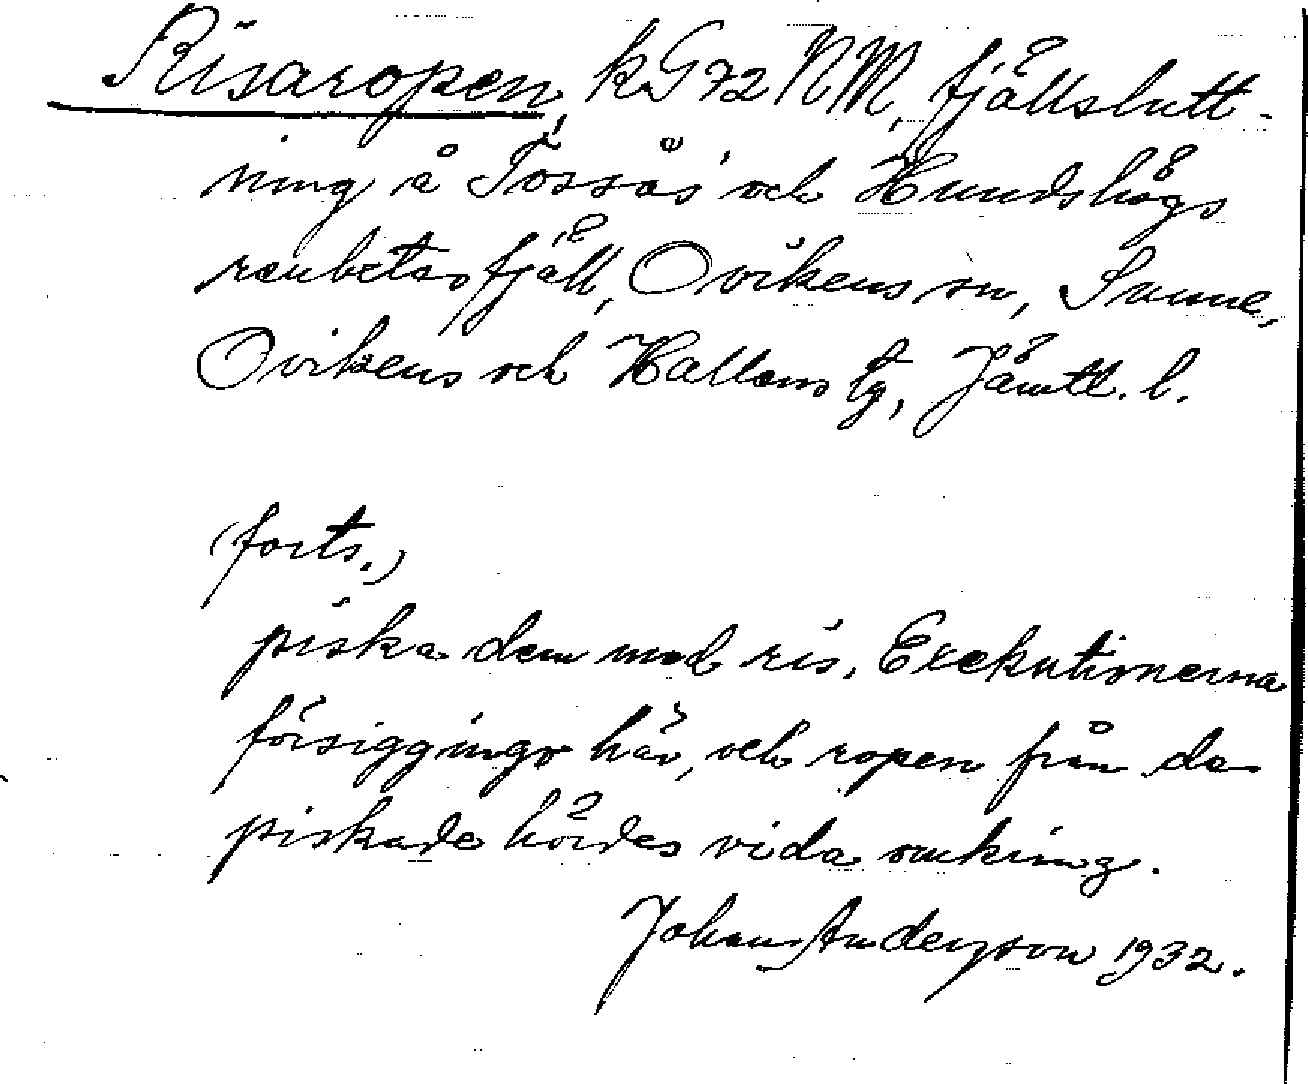 Risaropen, kG72NM, fjällslutt-
ning å Tossås' och Hundshögs
renbetesfjäll, Ovikens sn, Sunne,
Ovikens och Hallens tg, Jämtl. l.
(forts.)
piska dem med ris. Exekutionerna
försiggingo här, och ropen från de
piskade hördes vida omkring.
Johan Anderson 1932.